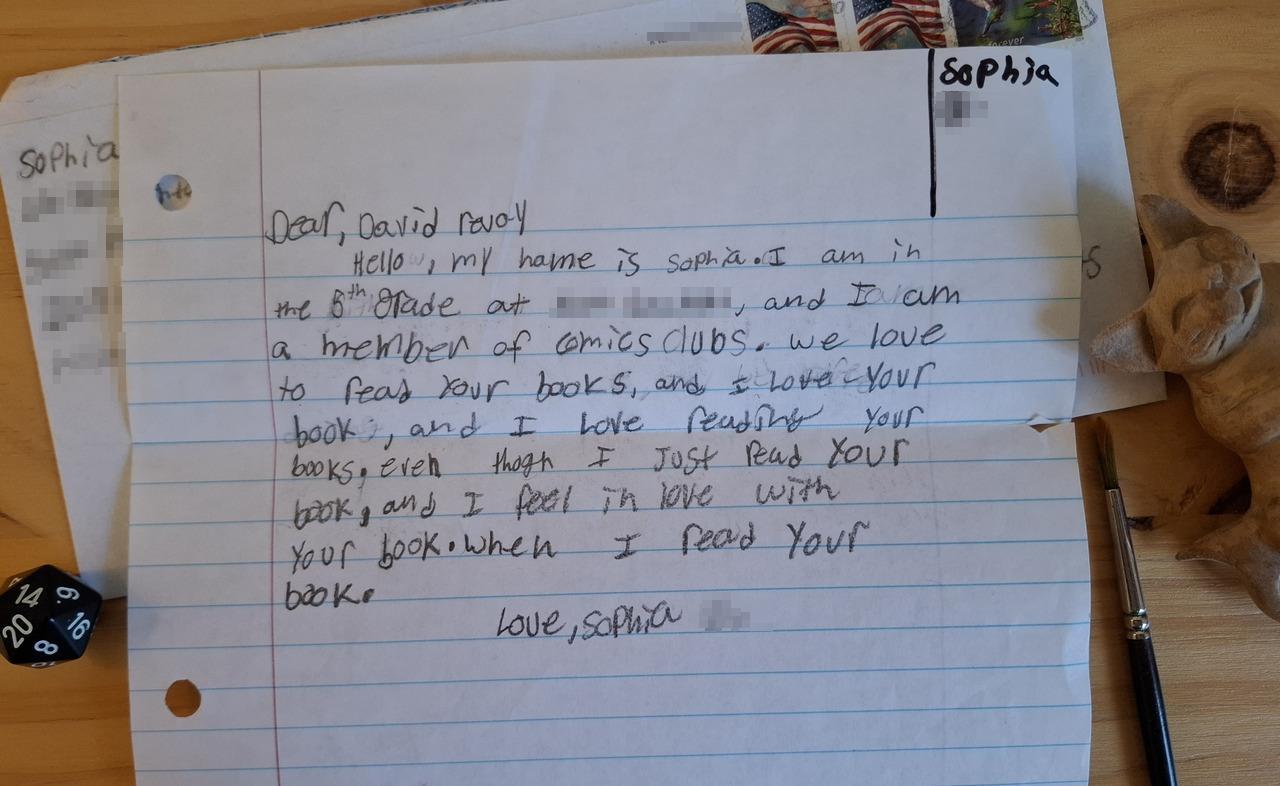 forever
Sophia
Sophia
Dear, David revoy
Hello, my name is sophia. I am in
the 5th Grade at , and I am
a member of comics clubs. we love
to read your books, and I Love your
book, and I Love reading your
books, even thogh I Just read Your
book, and I feel in love with
Your book. when I read Your
book.
Love, Sophia
14
9
20
16
8